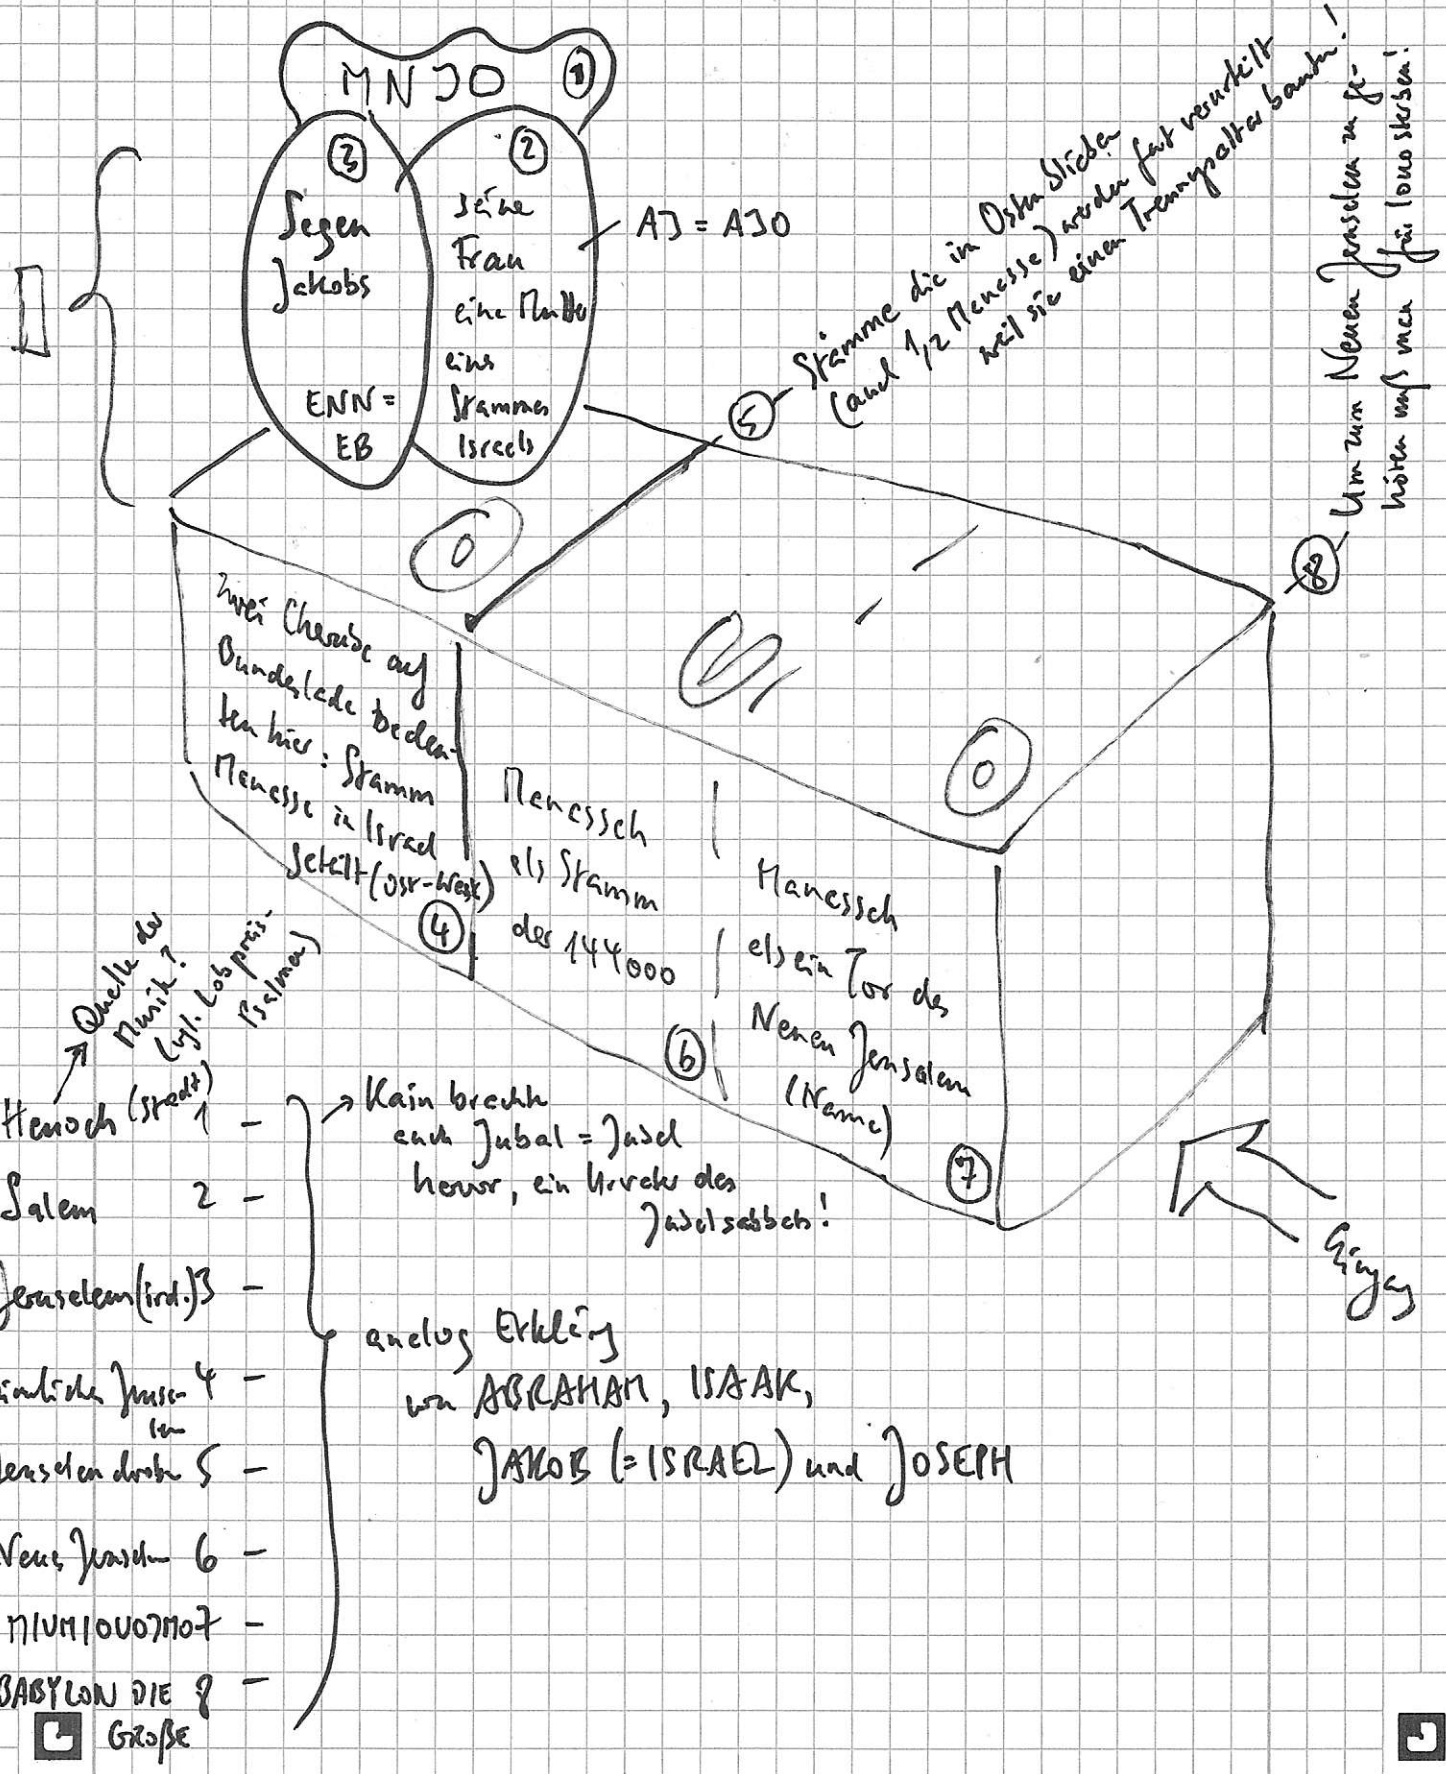 MNJO ①
③
Segen
Jakobs
ENN =
EB
②
seine
Frau
eine Mutter
eins
Stammes
Israels
AJ = AJO
⑤ – Stämme die in Osten blieben
(auch 1/2 Manasse) werden fast verurteilt
weil sie einen Trennungsaltar bauten!
⑧ – Um zum Neuen Jerusalem zu ge-
hören muß man für sterben!
0
0
Zwei Cherube auf
Bundeslade bedeu-
ten hier: Stamm
Manasse in Israel
geteilt (Ost-West)
④
Manasseh
als Stamm
der 144000
⑥
Manasseh
als ein Tor des
Neuen Jerusalem
(Name)
⑦
Eingang
Quelle der
Musik?
(vgl. Lobpreis-
Psalmen)
Henoch (Stadt) 1 –
Salem 2 –
Jerusalem (ird.) 3 –
Jerusa- 4 –
lem
Jerusalem droben 5 –
Neues Jerusalem 6 –
7 –
BABYLON DIE 8 –
GROßE
→ Kain brachte
auch Jubal = Jubel
hervor, ein des
Jubelsabbats!
analog Erklärung
von ABRAHAM, ISAAK,
JAKOB (= ISRAEL) und JOSEPH